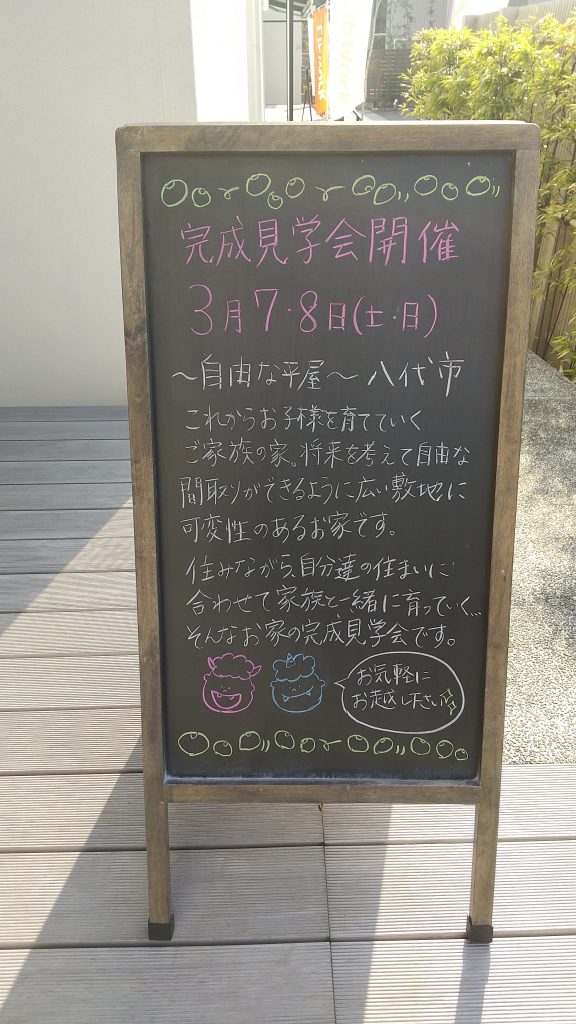 完成見学会開催
3月7・8日(土・日)
～自由な平屋～ 八代市
これからお子様を育てていく
ご家族の家。将来を考えて自由な
間取りができるように広い敷地に
可変性のあるお家です。
住みながら、自分達の住まいに
合わせて家族と一緒に育っていく...
そんなお家の完成見学会です。
お気軽に
お越し下さい